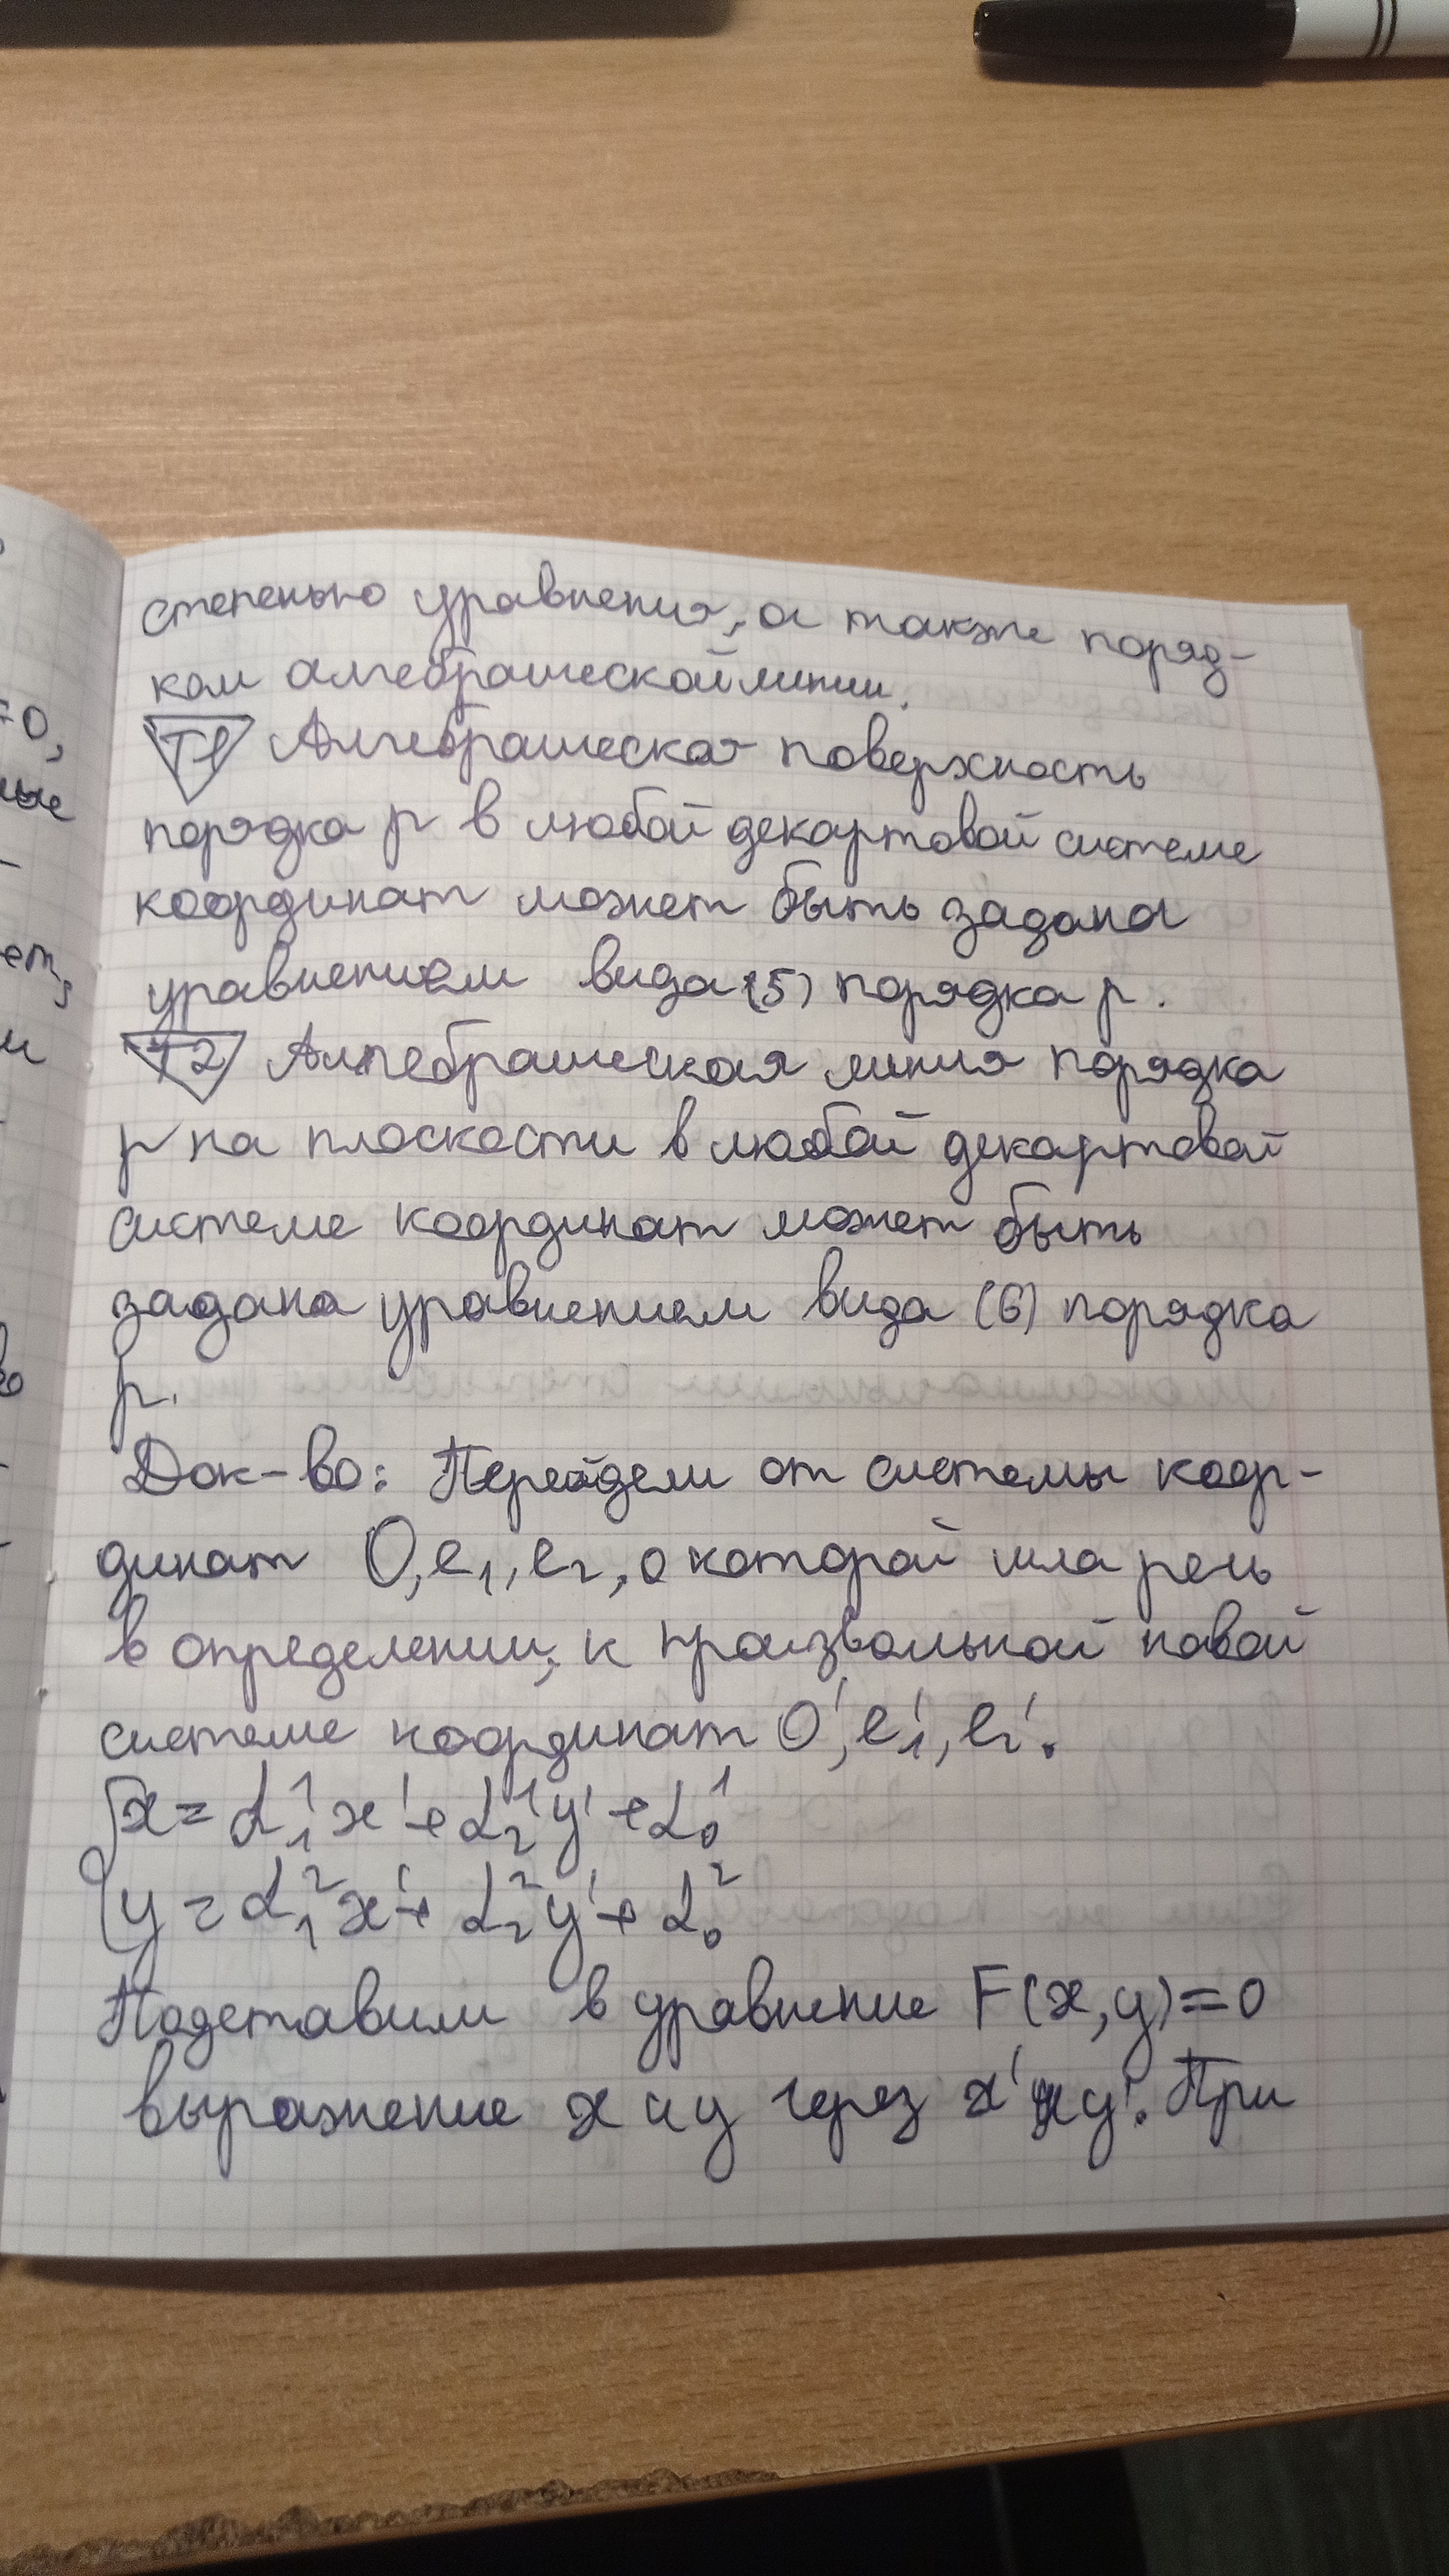 степенью уравнения, а также поряд-
ком алгебраической линии.
T1 Алгебраическая поверхность
порядка p в любой декартовой системе
координат может быть задана
уравнением вида (5) порядка p.
T2 Алгебраическая линия порядка
p на плоскости в любой декартовой
системе координат может быть
задана уравнением вида (6) порядка
p.
Док-во: Перейдем от системы коор-
динат O, e₁, e₂, о которой шла речь
в определении, к произвольной новой
системе координат O', e₁', e₂'.
x = α₁¹x' + α₂¹y' + α₀¹
y = α₁²x' + α₂²y' + α₀²
Подставим в уравнение F(x,y)=0
выражение x и y через x' и y'. При
=0,
ные
ет,
м